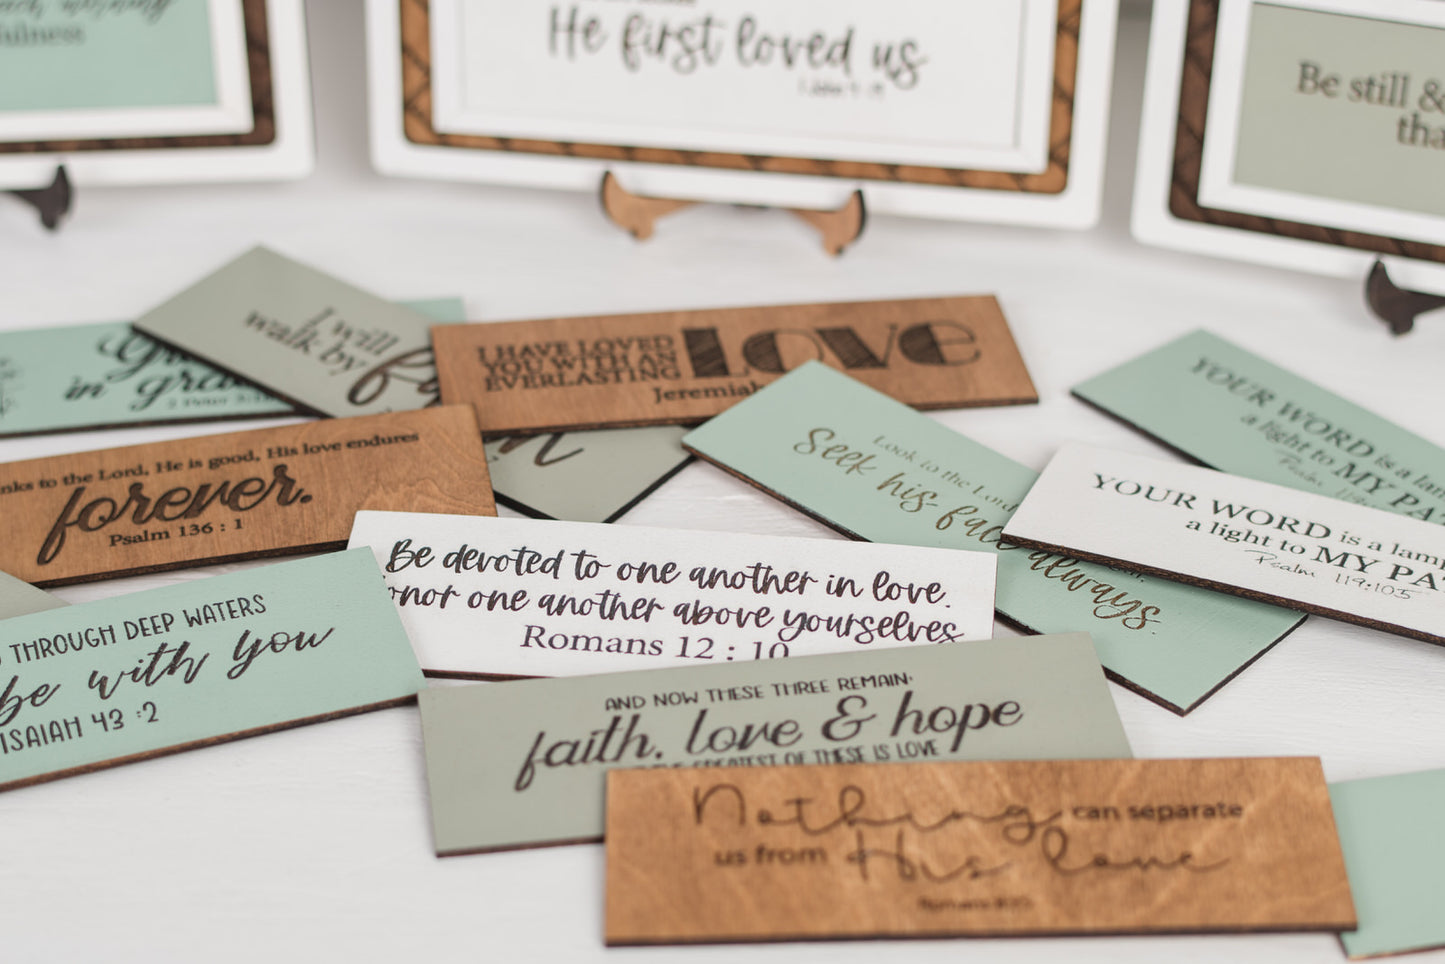 fulness
He first loved us
Be still &
tha
in gra
2 Peter 3:18
I will
walk by
I HAVE LOVED
YOU WITH AN
EVERLASTING LOVE
Jeremiah
nks to the Lord, He is good, His love endures
forever.
Psalm 136 : 1
Look to the Lord
Seek his face always.
YOUR WORD is a lam
a light to MY PA
Psalm 119
YOUR WORD is a lamp
a light to MY PA
Psalm 119:105
Be devoted to one another in love.
onor one another above yourselves
Romans 12 : 10
THROUGH DEEP WATERS
be with you
ISAIAH 43 :2
AND NOW THESE THREE REMAIN:
faith, love & hope
GREATEST OF THESE IS LOVE
Nothing can separate
us from His love
Romans